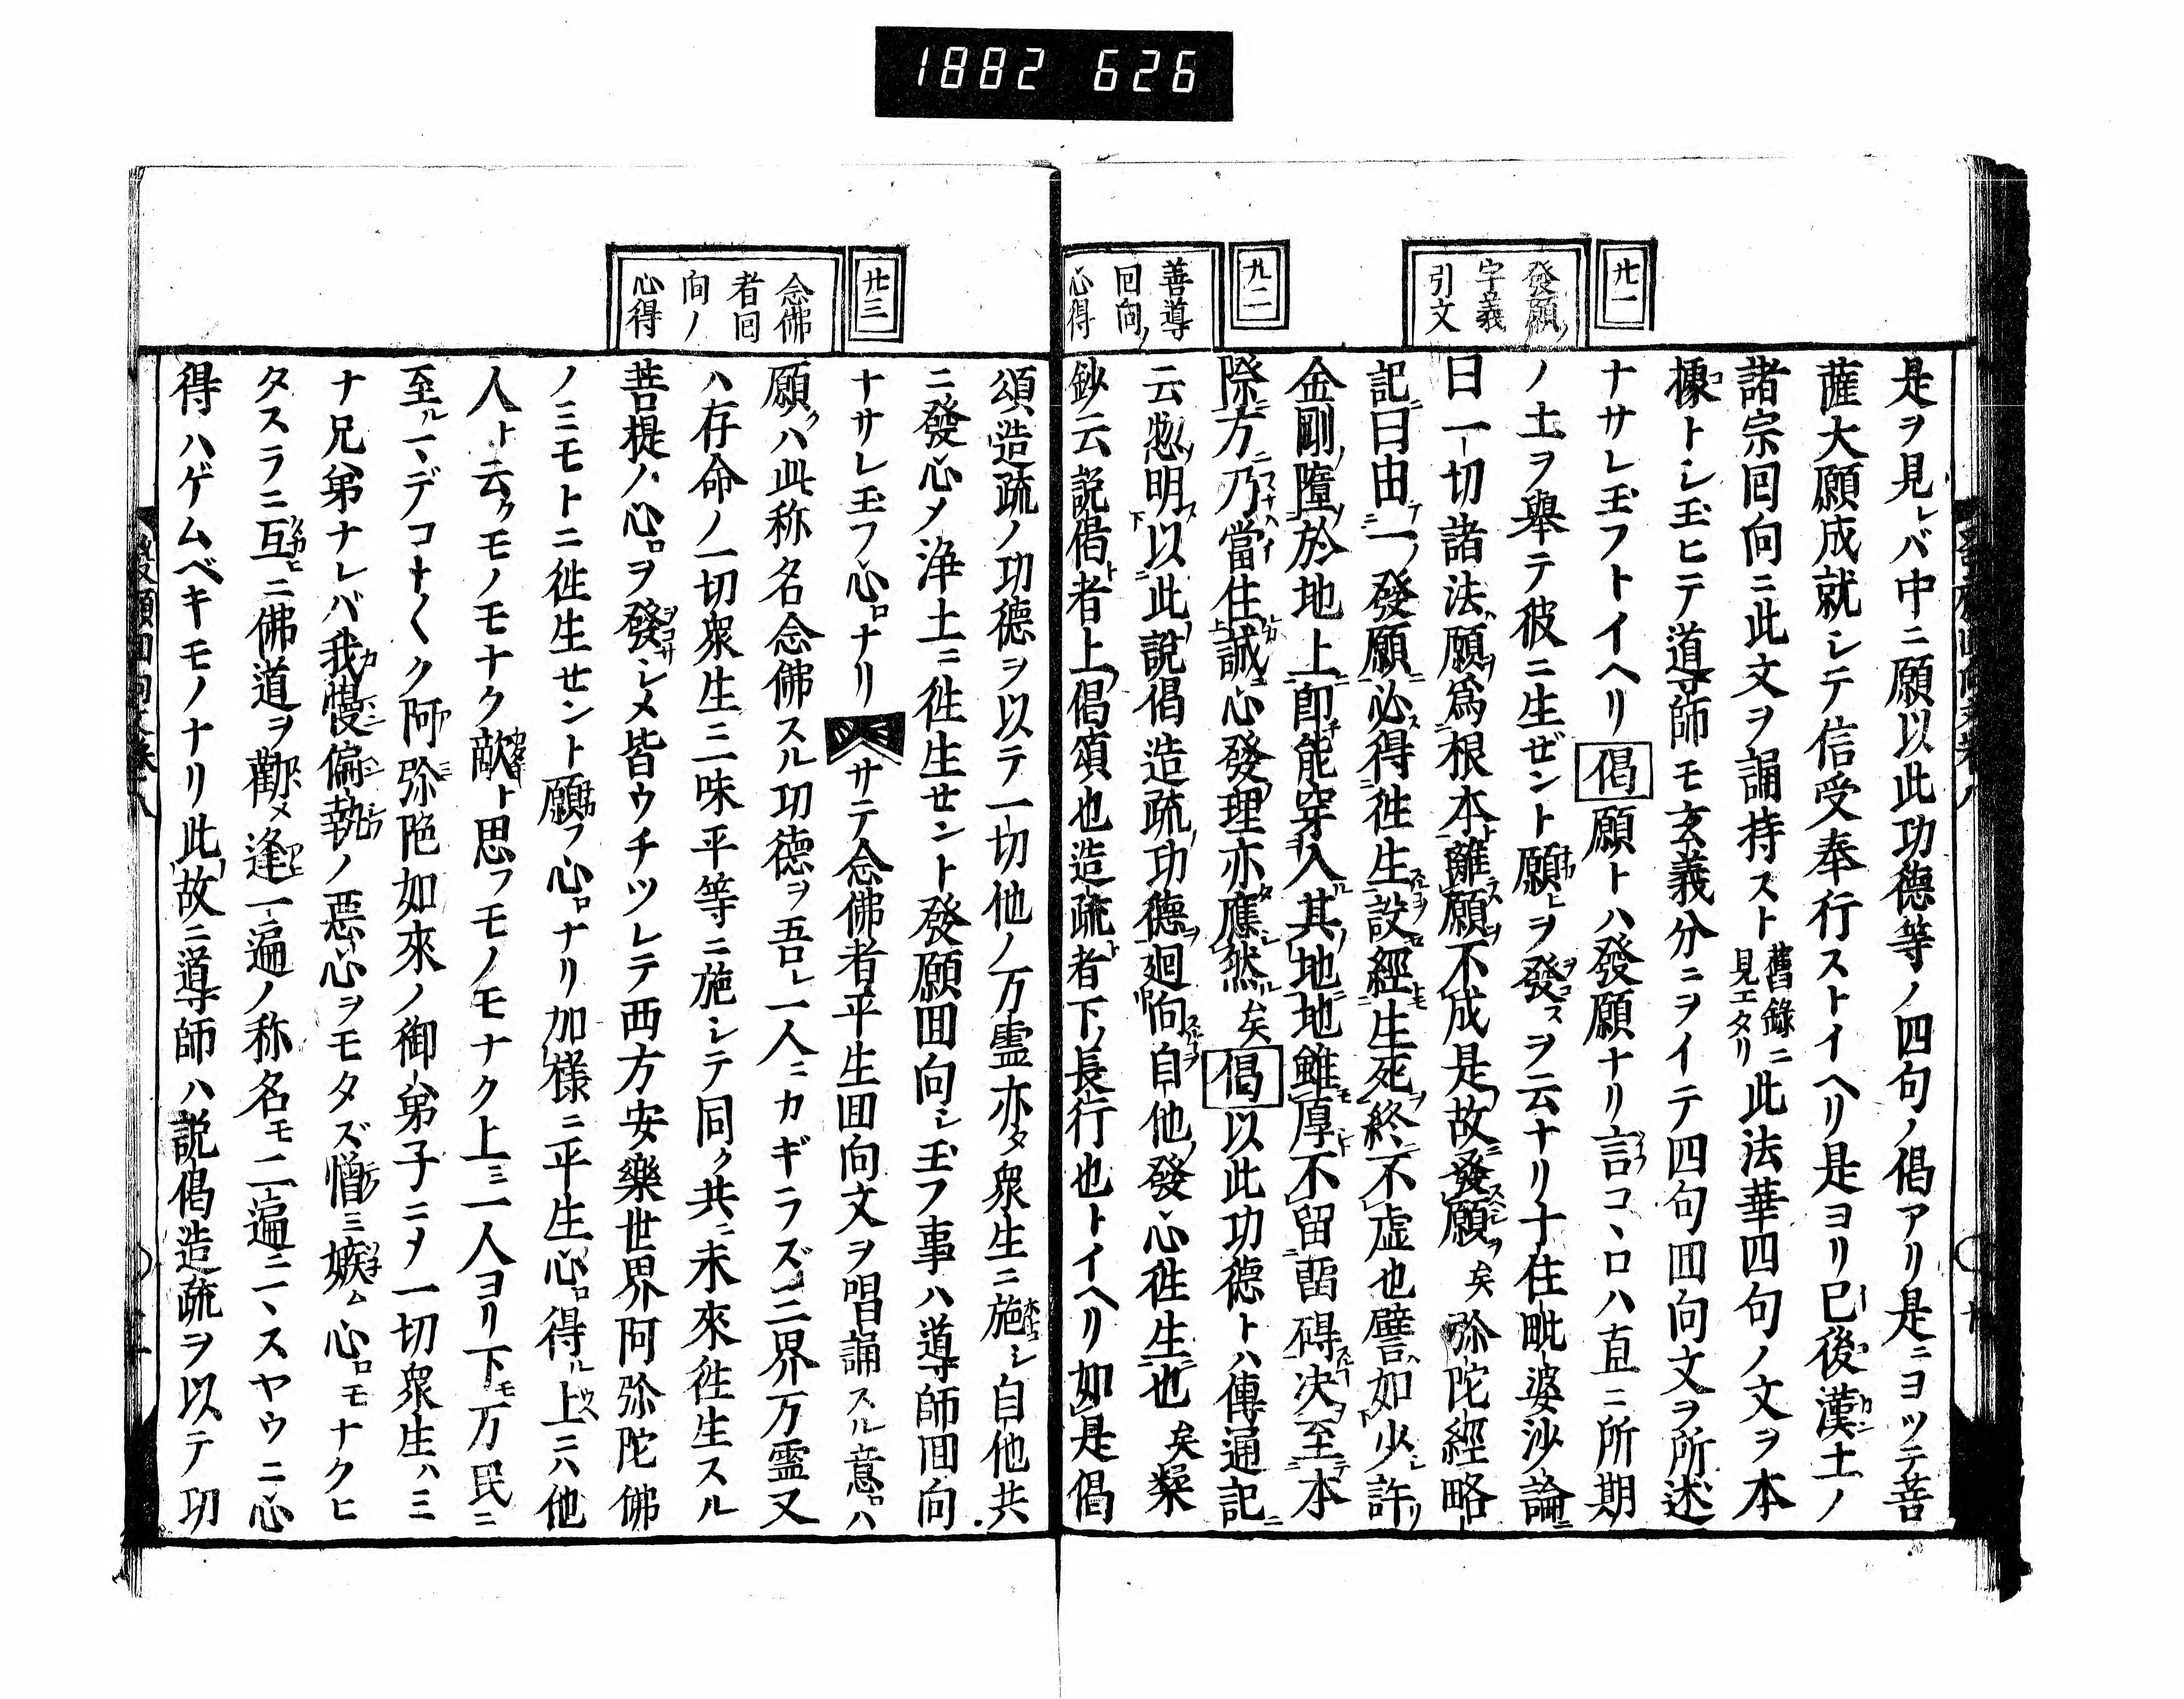 1882 626
廿一
發願ノ
字義
引文
廿二
善導
回向ノ
心得
是ヲ見レバ中ニ願以此功徳等ノ四句ノ偈アリ是ニヨツテ菩
薩大願成就シテ信受奉行ストイヘリ是ヨリ已後漢土ノ
諸宗回向ニ此文ヲ誦持スト舊錄ニ見エタリ此法華四句ノ文ヲ本
據トシ玉ヒテ道導師モ玄義分ニヲイテ四句回向文ヲ所述
ナサレ玉フトイヘリ偈願トハ發願ナリ言コヽロハ直ニ所期
ノ土ヲ舉テ彼ニ生ゼント願ヒヲ發スヲ云ナリ十住毗婆沙論ニ
曰一切諸法願爲根本離願不成是故發願矣弥陀經略
記曰由一發願必得徃生設經生死終不虚也譬如少許
金剛墮於地上卽能穿入其地地雖厚不留畱碍决至本
際方乃當住誠心發理亦應然矣偈以此功徳トハ傳通記ニ
云惣明以此說偈造疏功徳廻向自他發心徃生也矣楽
鈔云説偈者上偈頌也造疏者下長行也トイヘリ如是偈
廿三
念佛
者回
向ノ
心得
頌造疏ノ功徳ヲ以テ一切他ノ万靈亦タ衆生ニ施シ自他共
ニ發心メ浄土ニ徃生せント發願回向シ玉フ事ハ導師回向
ナサレ玉フ心ロナリサテ念佛者平生回向文ヲ唱誦スル意ロハ
願クハ此称名念佛スル功徳ヲ吾レ一人ニカギラズ三界万靈又
ハ存命ノ一切衆生三味平等ニ施シテ同ク共ニ未來徃生スル
菩提ノ心ロヲ發シメ皆ウチツレテ西方安樂世界阿弥陀佛
ノミモトニ徃生せント願フ心ロナリ加様ニ平生心ロ得ル上ニハ他
人ト云クモノモナク敵ト思フモノモナク上ミ一人ヨリ下モ万民ニ
至ルマデコト〱ク阿弥陀如來ノ御弟子ニメ一切衆生ハミ
ナ兄弟ナレバ我慢偏執ノ惡心ヲモタズ憎ミ嫉ム心ロモナクヒ
タスラニ互ヒニ佛道ヲ勸メ逢一遍ノ称名モ二遍ニヽスヤウニ心
得ハゲムベキモノナリ此故ニ導師ハ説偈造疏ヲ以テ功